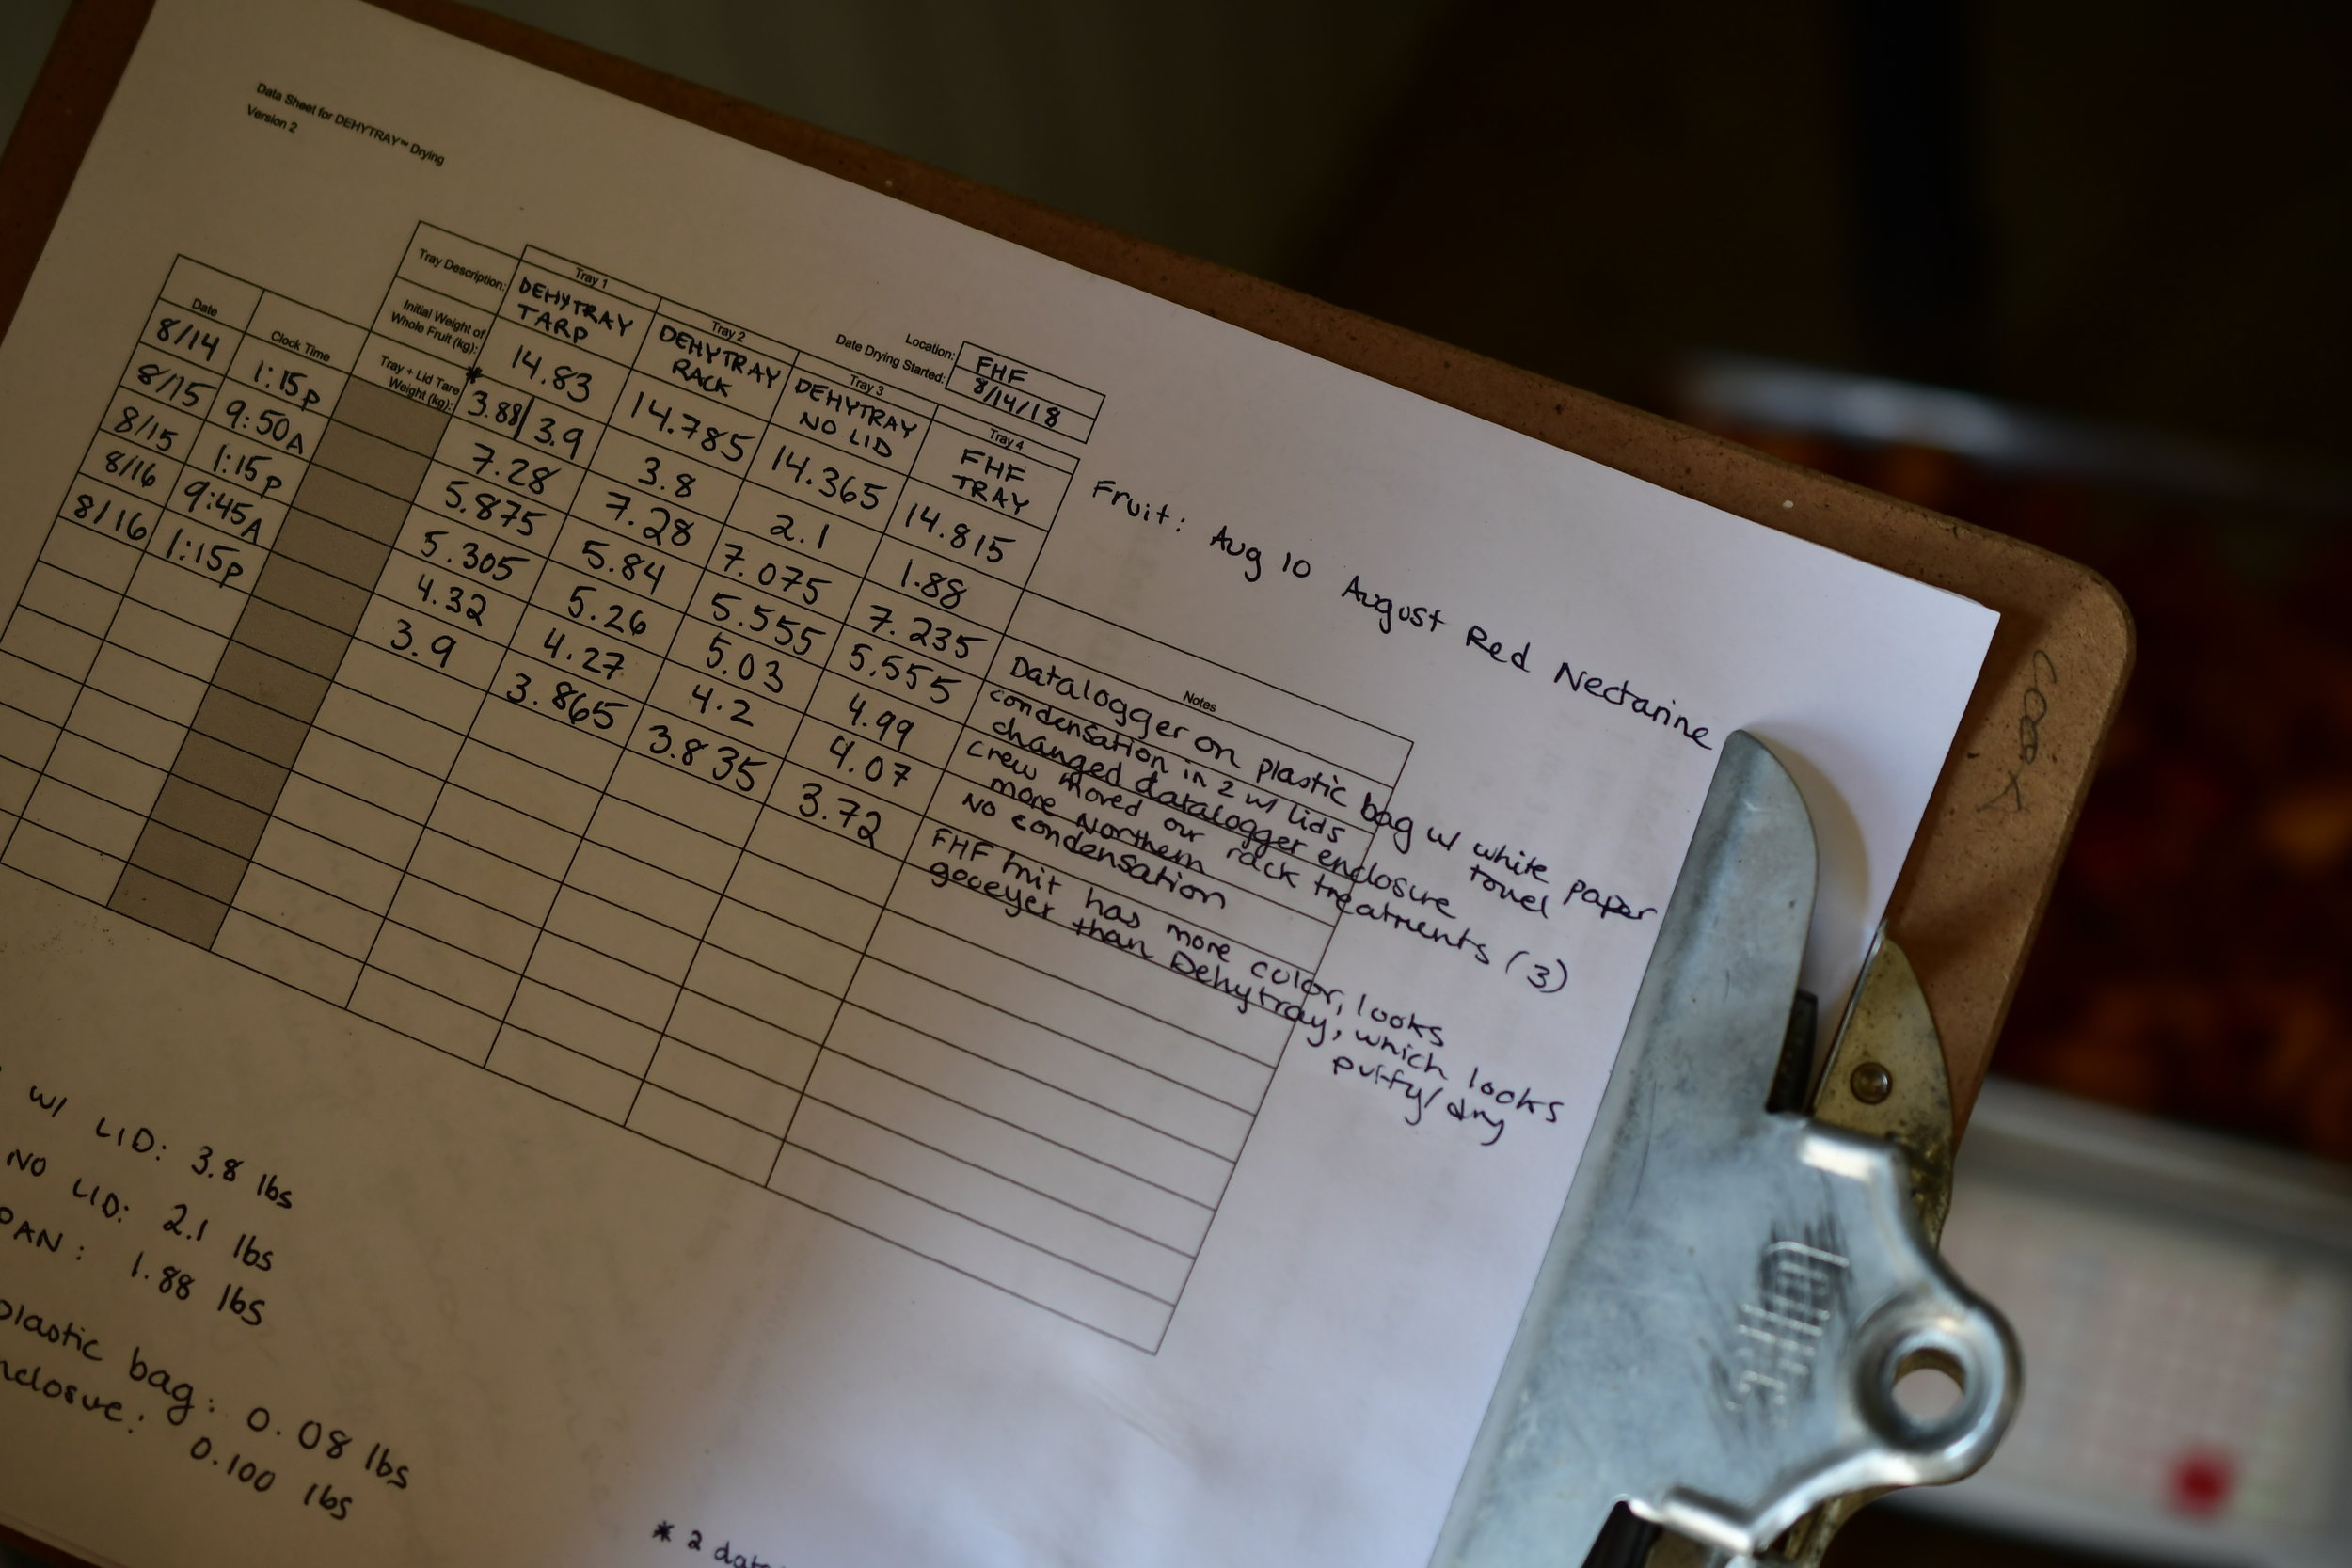 Data Sheet for DEHYTRAY™ Drying
Version 2
Location: FHF
Date Drying Started: 8/14/18
Fruit: Aug 10 August Red Nectarine
Tray 1 Tray 2 Tray 3 Tray 4
Tray Description: DEHYTRAY TARP DEHYTRAY RACK DEHYTRAY NO LID FHF TRAY
Initial Weight of Whole Fruit (kg): 14.83 14.785 14.365 14.815
Tray + Lid Tare Weight (kg): * 3.88/ 3.9 3.8 2.1 1.88
Date Clock Time Notes
8/14 1:15p 7.28 7.28 7.075 7.235 Datalogger on plastic bag w/ white paper towel
8/15 9:50A 5.875 5.84 5.555 5.555 condensation in 2 w/ lids
changed datalogger enclosure
8/15 1:15p 5.305 5.26 5.03 4.99 crew moved our rack treatments (3)
more Northern
8/16 9:45A 4.32 4.27 4.2 4.07 No condensation
8/16 1:15p 3.9 3.865 3.835 3.72 FHF fruit has more color, looks
gooeyer than Dehytray, which looks
puffy/dry
w/ LID: 3.8 lbs
NO LID: 2.1 lbs
PAN: 1.88 lbs
plastic bag: 0.08 lbs
0.100 lbs
* 2